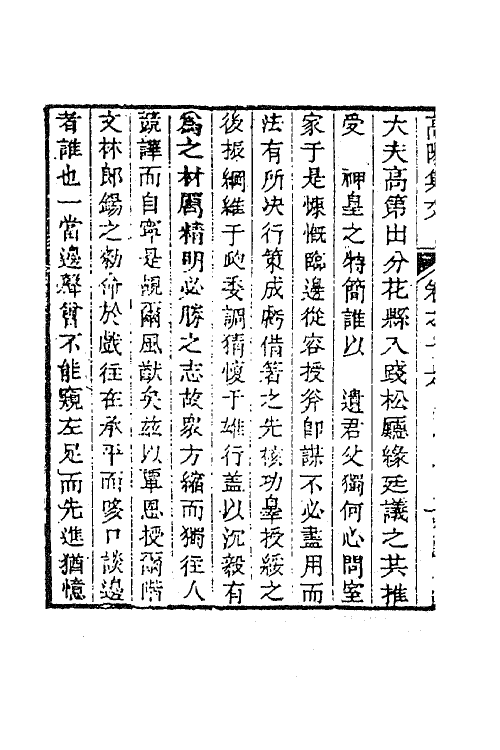 大夫高第出分花縣入踐松廳緣廷議之共推
受　神皇之特簡誰以　遺君父獨何心問室
家于是慷慨臨邊從容授斧卽謀不必盡用而
法有所決行策成虧借箸之先核功臯授綏之
後振綱維于政委調猜懷于雄行蓋以沉毅有
為之材厲精明必勝之志故衆方縮而獨往人
競譁而自寧是覘爾風猷矣茲以覃恩授爾階
文林郎錫之勑命於戲往在承平而哆口談邊
者誰也一當邊釁曾不能窺左足而先進猶憶